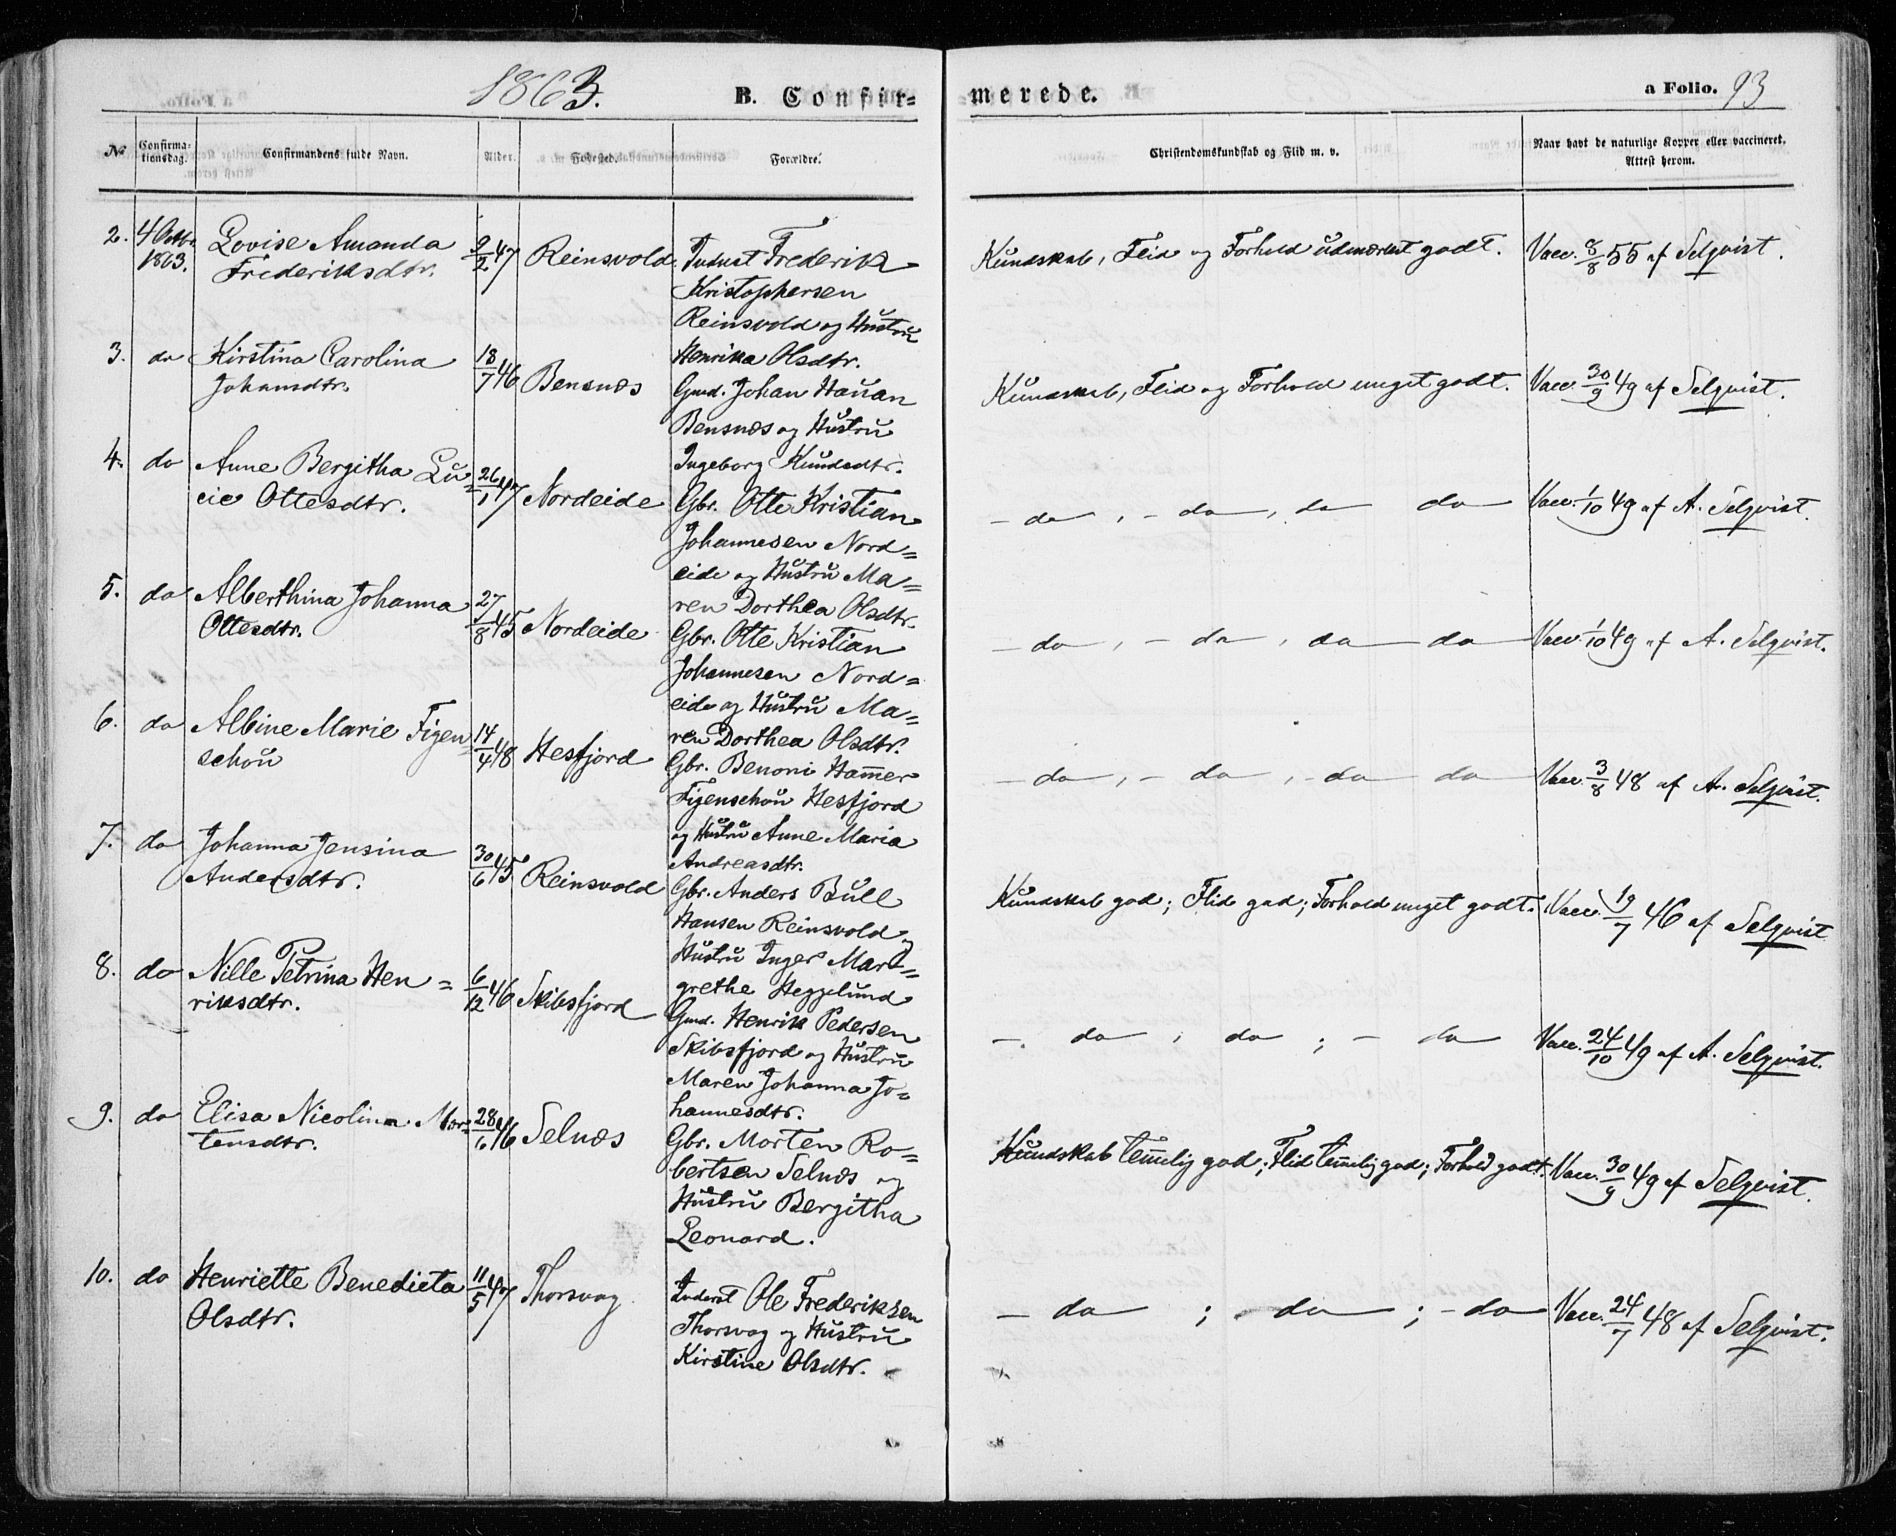 1863. B. Confir= merede. a Folio. 93
No Confirma-tionsdag. Confirmandens fulde Navn. Alder. Fødested. Forældre. Christendomskundskab og Flid m. v. Naar havt de naturlige Kopper eller vaccineret. Attest herom.
2. 4 Octbr. 1863. Lovise Amanda 9/2 47 Reinsvold Inderst Frederik Kundskab, Flid og Forhold udmærket godt. Vacc. 8/8 55 af Selqvist.
Frederiksdtr. Kristophersen
Reinsvold og Hustru
3. do Kirstina Carolina 18/7 46 Bensnæs Henrika Olsdtr.
Johansdtr. Gmd. Johan Hauan Kundskab, Flid og Forhold meget godt. Vacc. 30/9 49 af Selqvist.
Bensnæs og Hustru
4. do Anne Bergitha Lu= 26/1 47 Nordeide Ingeborg Knudsdtr.
cie Ottesdtr. Gbr. Otte Kristian - do, - do, do do Vacc. 1/10 49 af A. Selqvist.
Johannesen Nord=
eide og Hustru Ma=
5. do Alberthina Johanna 27/8 45 Nordeide ren Dorthea Olsdtr.
Ottesdtr. Gbr. Otte Kristian - do, - do, do do Vacc. 1/10 49 af A. Selqvist.
Johannesen Nord=
eide og Hustru Ma=
6. do Albine Marie Figen= 14/4 48 Hesfjord ren Dorthea Olsdtr.
schou Gbr. Benoni Hammer - do, - do, - do do Vacc. 3/8 48 af A. Selqvist.
Figenschou Hesfjord
7. do Johanna Jensina 30/6 45 Reinsvold og Hustru Anne Maria
Andersdtr. Andreasdtr.
Gbr. Anders Bull Kundskab god; Flid god; Forhold meget godt. Vacc. 19/7 46 af Selqvist
Hansen Reinsvold og
8. do Nille Petrina Hen= 6/12 46 Skibsfjord Hustru Inger Mar=
riksdtr. grethe Heggelund
Gmd. Henrik Pedersen - do, do; - do Vacc. 24/10 49 af A. Selqvist.
Skibsfjord og Hustru
Maren Johanna Jo=
9. do Elisa Nicolina Mor= 28/6 46 Selnæs hannesdtr.
tensdtr. Gbr. Morten Ro= Kundskab temmelig god; Flid temmelig god; Forhold godt. Vacc. 30/9 49 af Selqvist.
bertsen Selnæs og
Hustru Bergitha
Leonard.
10. do Henriette Benedicta 11/5 47 Thorsvag Inderst Ole Frederiksen - do; do; - do Vacc. 24/7 48 af Selqvist.
Olsdtr. Thorsvag og Hustru
Kirstine Olsdtr.